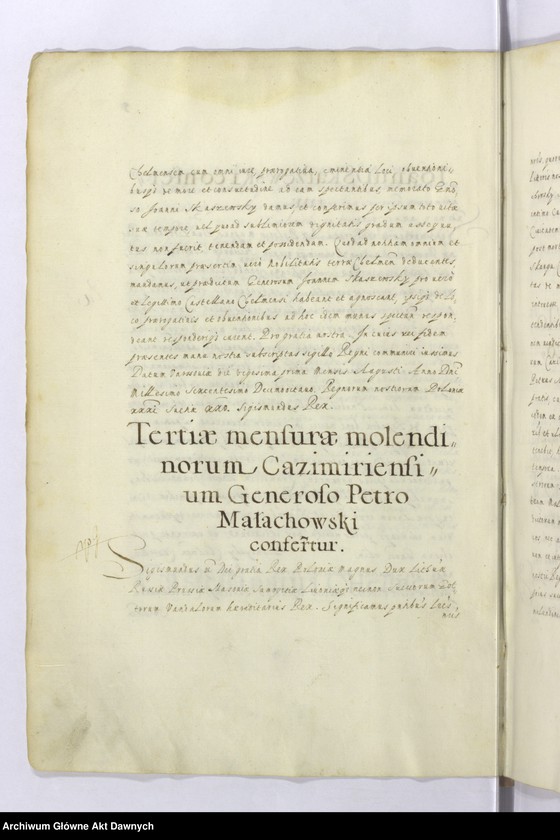 Chelmensem cum omni iure, prorogativa, eminentia loci, obventioni,
busq3 de more et consuetudine ad eam spectantibus memorato Gnõ,
so Joanni Skaszewsky damus et conferimus per ipsum
suæ tempore, vel quoad sublimiorem dignitatis gradum assequu,
tus non fuerit tenendam et possidendam. Quod ad notitiam omnium et
singulorum præsertim vero nobilitatis terræ Chelmen̄ deducentes
mandamus, ut prædictum Generosum Joannem Skaszewsky pro vero
et legittimo Castellano Chelmensi habeant et agnoscant, ipsiq3 de lo,
co prorogativis et obventionibus ad hoc idem munus spectan̄ respon,
deant responderiq3 faciant. Pro gratia nostra. In cuius rei fidem
præsentes manu nostra subscriptas sigillo Regni communiri iussimus
Datum Varsoviæ die vigesima prima Mensis Augusti Anno Dñi
Millesimo Sexcentesimo Decimo Regnorum nostrorum Poloniæ
xxxi Sueciæ xxv. Sigismundus Rex.
Tertiæ mensuræ molendi„
norum Cazimiriensi„
um Generoso Petro
Małachowski
confert̃ur.
Sigismundus 3 Dei gratia Rex Poloniæ Magnus Dux Lithuæ
Russiæ Prussiæ Masoviæ Samogitiæ Livoniæq3 necnon Suecorum Got,
torum Vandalorum hæreditarius Rex. Significamus præntibus lris
nris